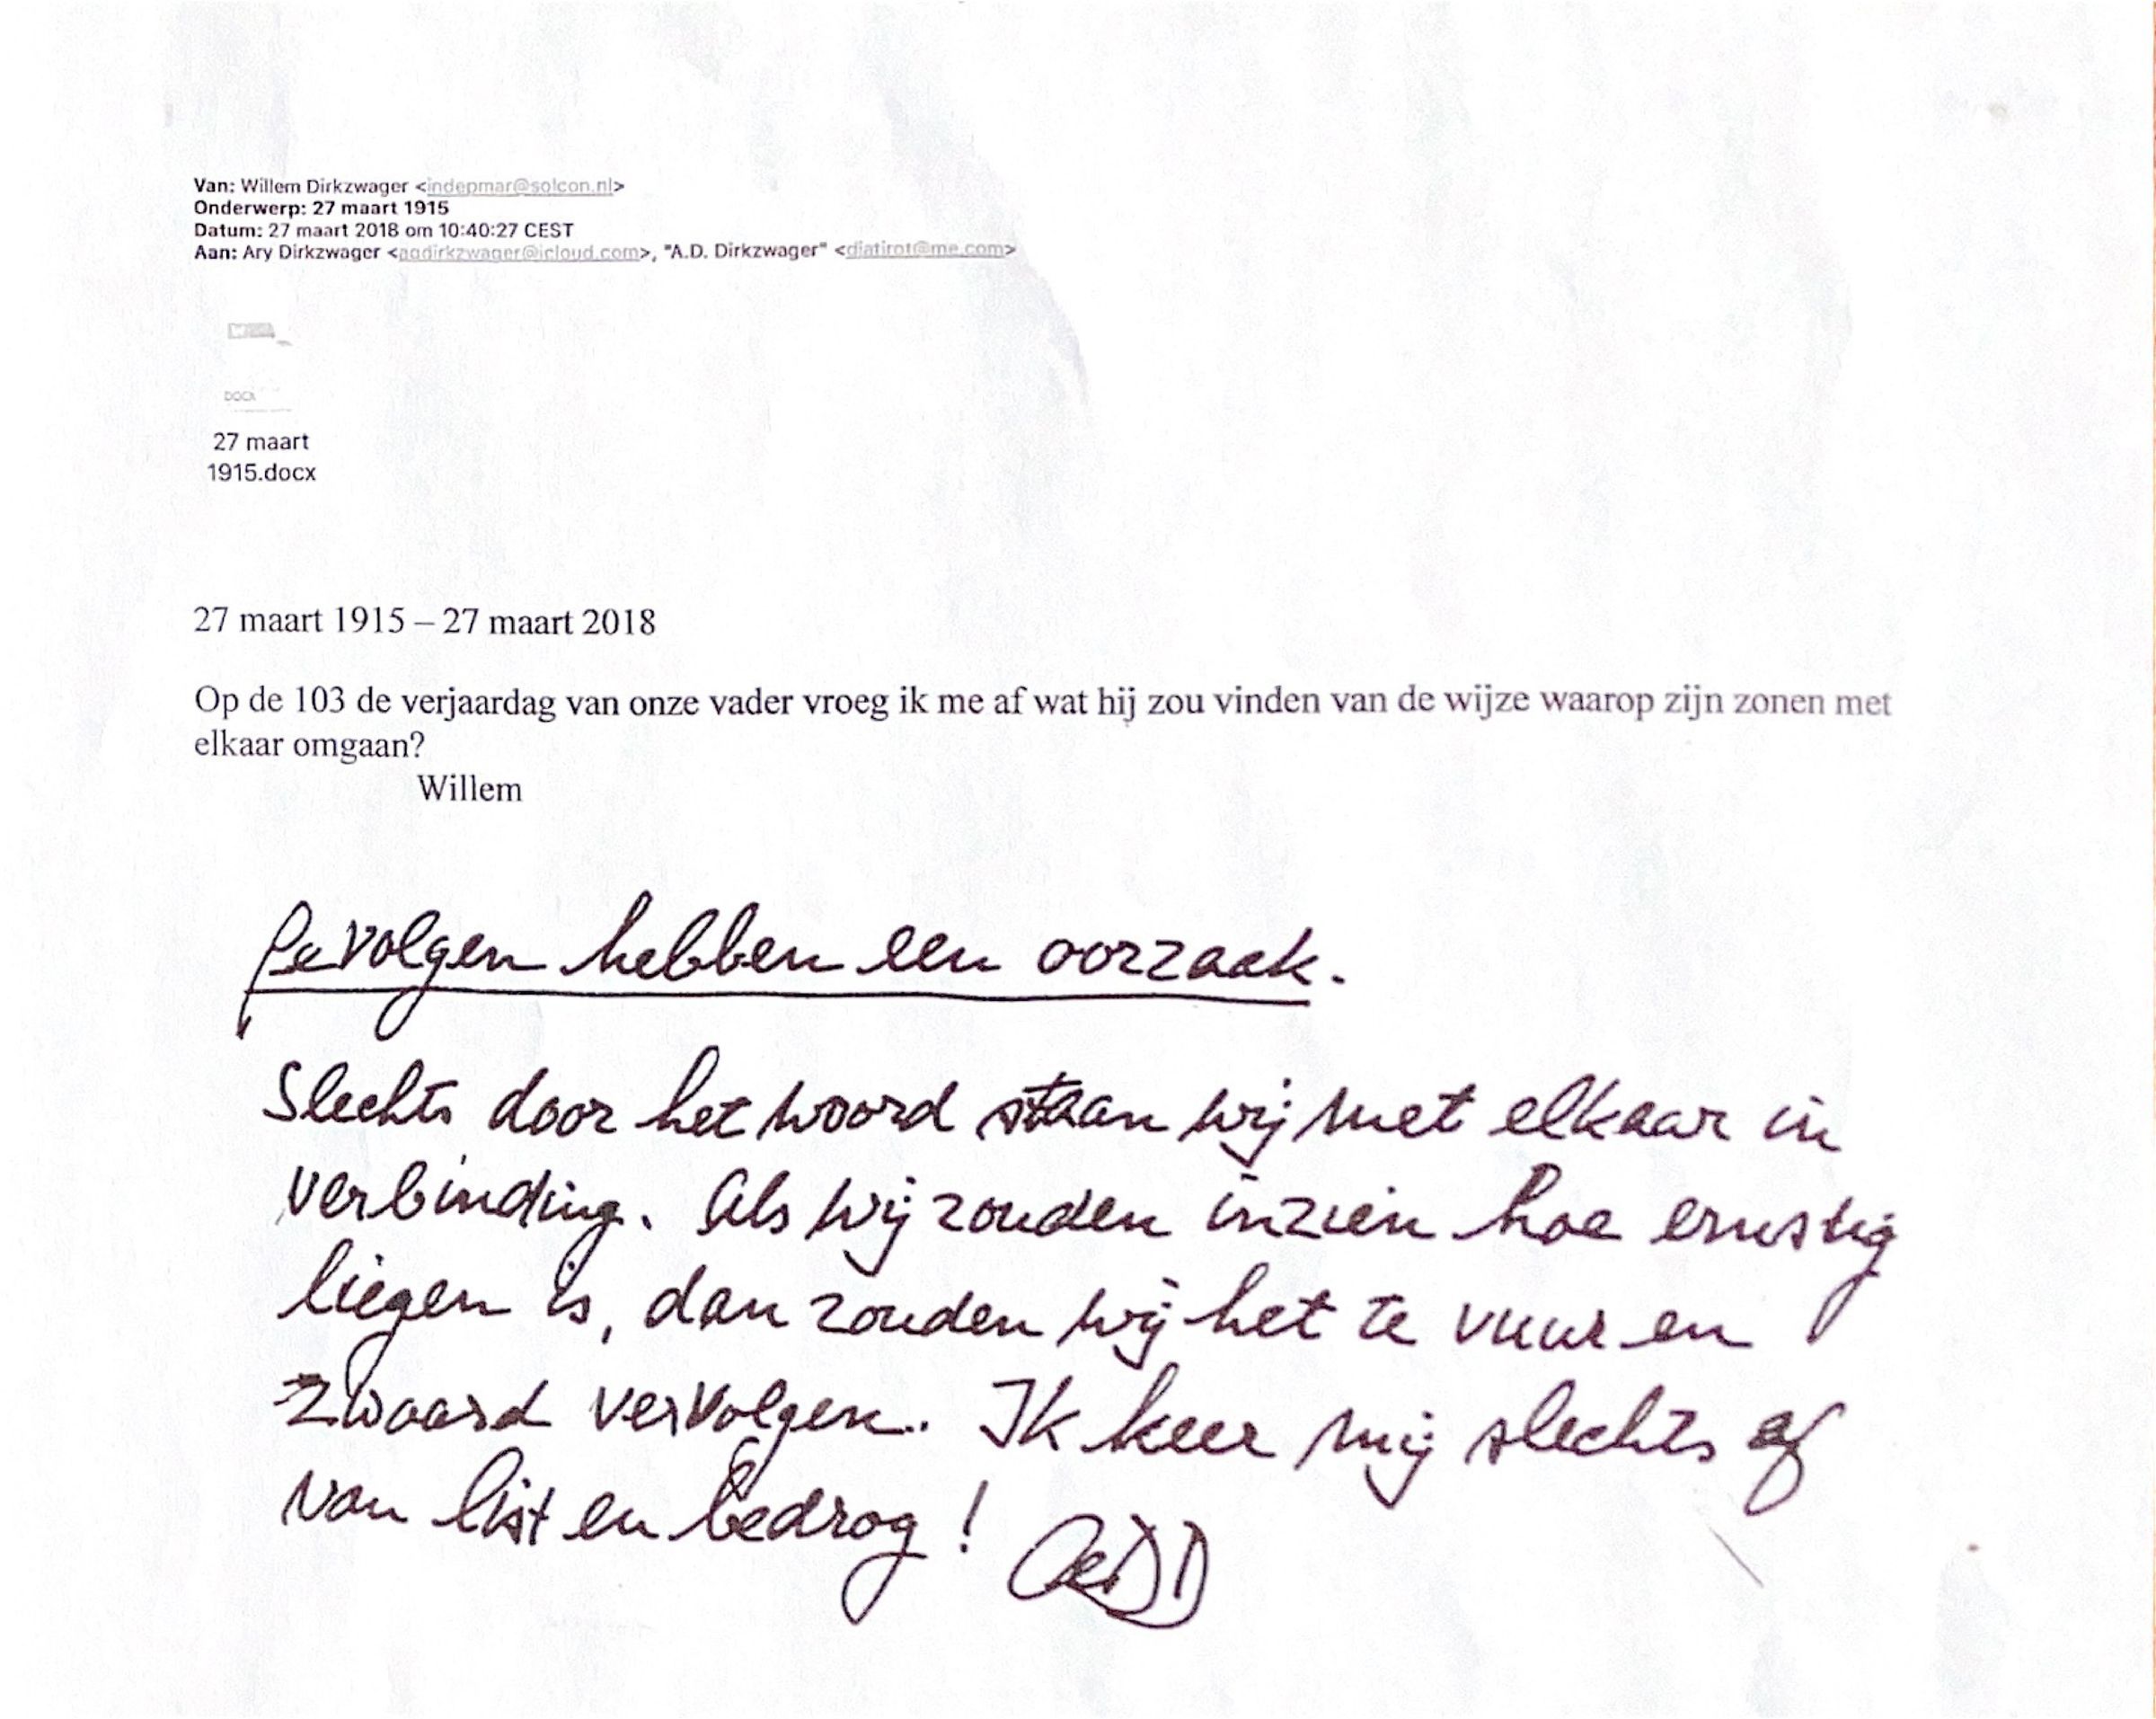 Van: Willem Dirkzwager <indepmar@solcon.nl>
Onderwerp: 27 maart 1915
Datum: 27 maart 2018 om 10:40:27 CEST
Aan: Ary Dirkzwager <aadirkzwager@icloud.com>, "A.D. Dirkzwager" <diatirot@me.com>
DOCX
27 maart
1915.docx
27 maart 1915 – 27 maart 2018
Op de 103 de verjaardag van onze vader vroeg ik me af wat hij zou vinden van de wijze waarop zijn zonen met
elkaar omgaan?
Willem
Gevolgen hebben een oorzaak.
Slechts door het woord staan wij met elkaar in
verbinding. Als wij zouden inzien hoe ernstig
liegen is, dan zouden wij het te vuur en
zwaard vervolgen. Ik keer mij slechts af
van list en bedrog!